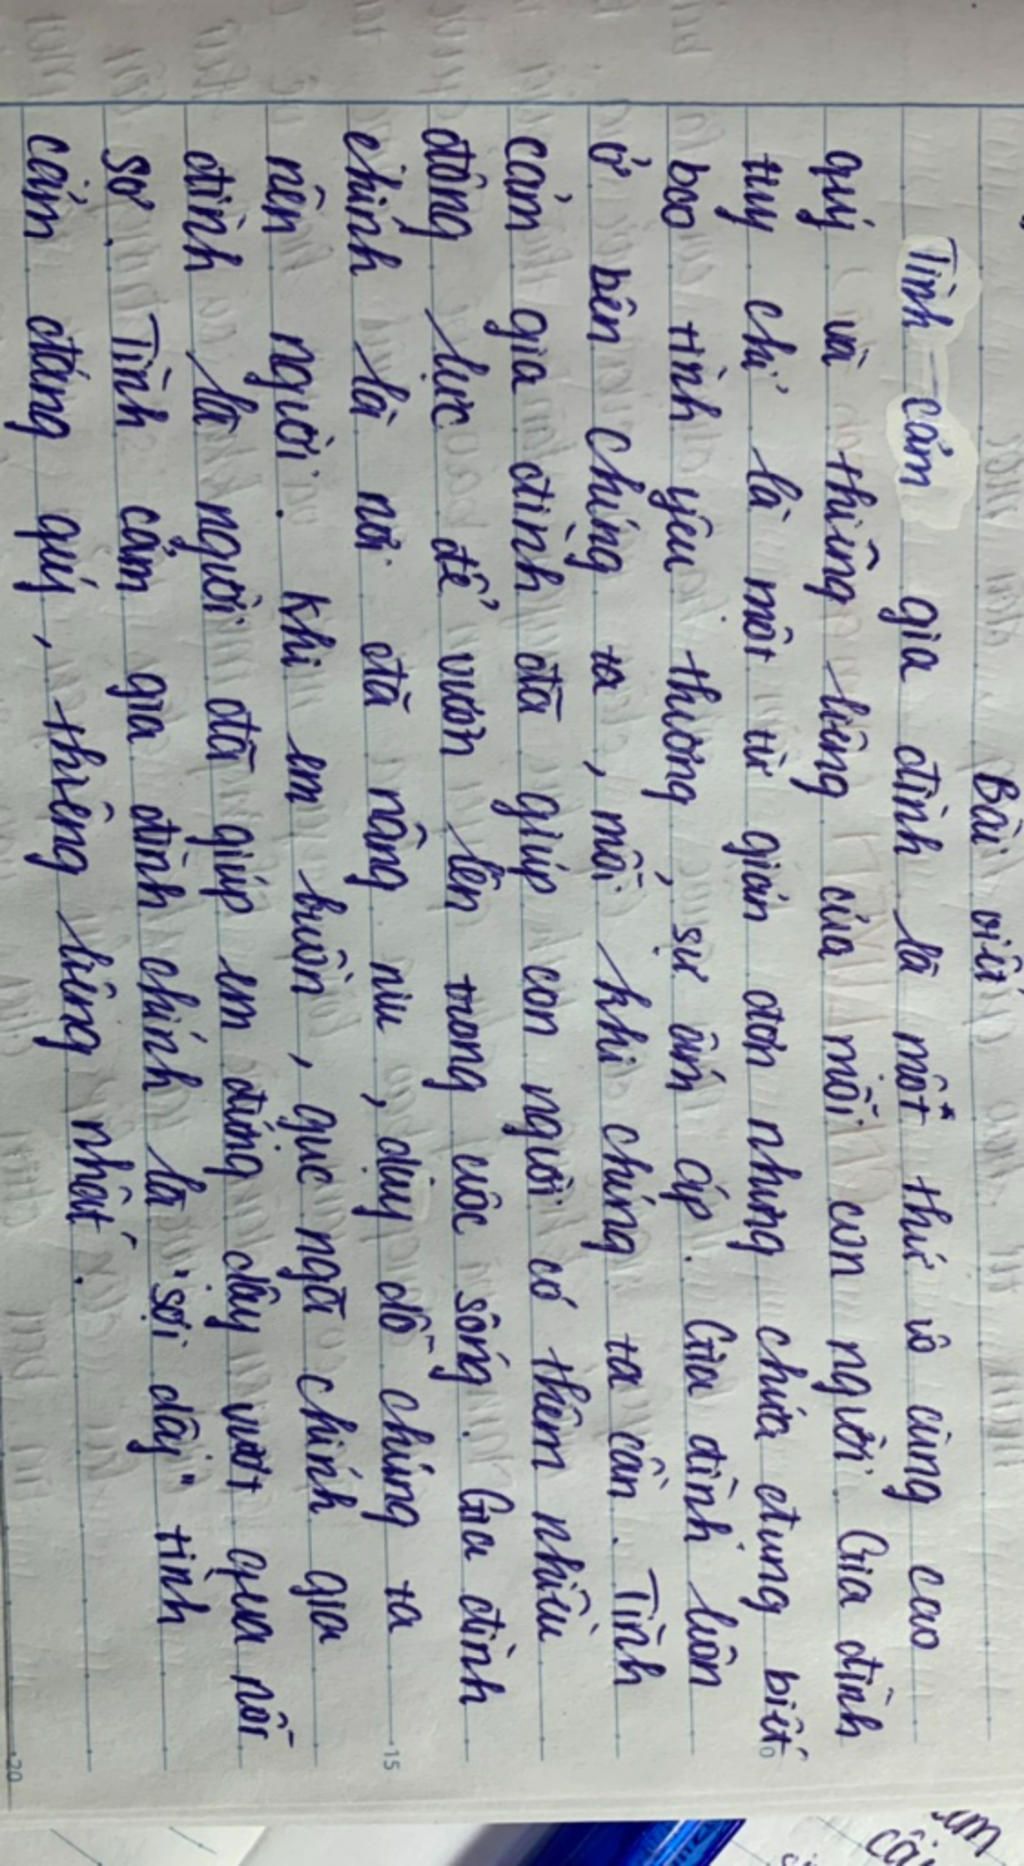 Bài viết
Tình cảm gia đình là một thứ vô cùng cao
quý và thiêng liêng của mỗi con người. Gia đình
tuy chỉ là một từ giản đơn nhưng chứa đựng biết
bao tình yêu thương, sự ấm áp. Gia đình luôn
ở bên chúng ta, mỗi khi chúng ta cần. Tình
cảm gia đình đã giúp con người có thêm nhiều
động lực để vươn lên trong cuộc sống. Gia đình
chính là nơi đã nâng niu, dạy dỗ chúng ta
nên người. Khi em buồn, gục ngã chính gia
đình là người đã giúp em đứng dậy vượt qua nỗi
sợ. Tình cảm gia đình chính là "sợi dây" tình
cảm đáng quý, thiêng liêng nhất.
15
20